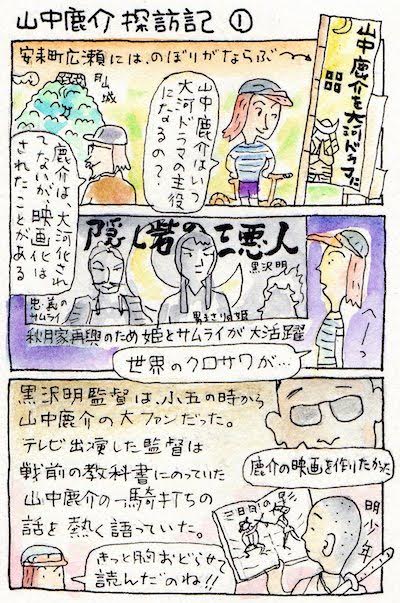 山中鹿介探訪記①
安来町広瀬には、のぼりがならぶ
山中鹿介を大河ドラマに
月山城
山中鹿介はいつ
大河ドラマの主役
になるの？
鹿介は、大河化され
てないが、映画化は
されたことがある
隠し砦の三悪人
黒沢明
忠義の
サムライ
男まさりの姫
へーっ
秋月家再興のため姫とサムライが大活躍
世界のクロサワが…
黒沢明監督は、小五の時から
山中鹿介の大ファンだった。
テレビ出演した監督は
戦前の教科書にのっていた
山中鹿介の一騎打ちの
話を熱く語っていた。
鹿介の映画を作りたかった
三日月の
明少年
きっと胸おどらせて
読んだのね！！